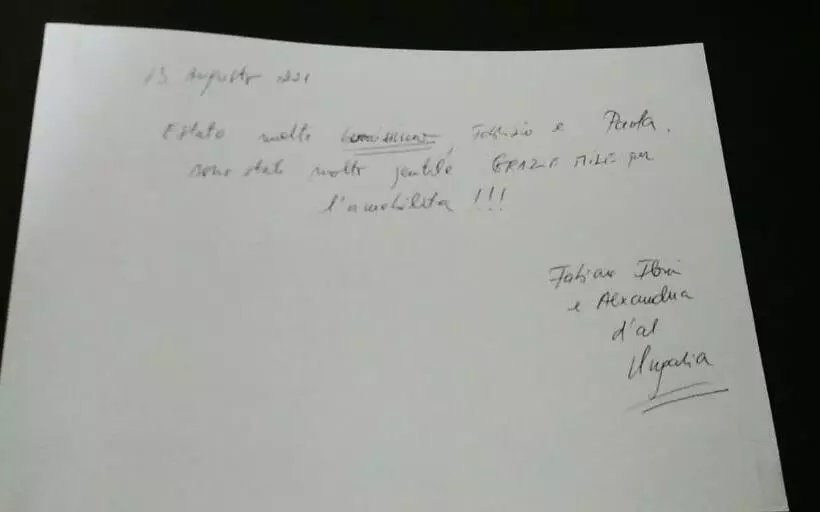 13 Augusto 2021
E stato molto benissimo, Fabrizio e Paola.
sono stati molto gentile GRAZIE MILE per
l'amobilita !!!
Fabian
e Alexandra
d'al
Ungaria